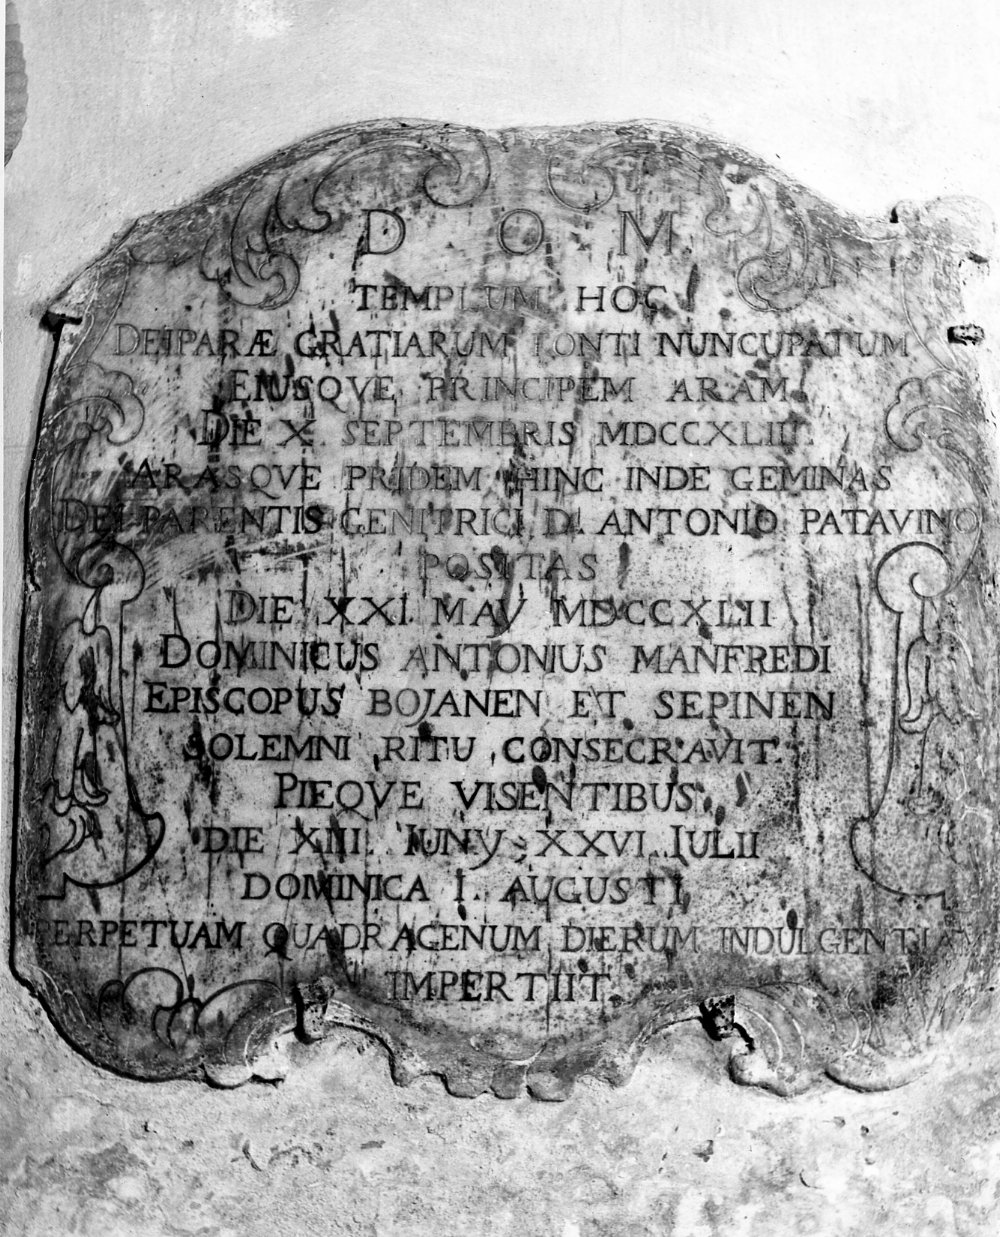 D O M
TEMPLUM HOC
DEIPARÆ GRATIARUM FONTI NUNCUPATUM
EIUSQVE PRINCIPEM ARAM
DIE X SEPTEMBRIS MDCCXLII
ARASQVE PRIDEM HINC INDE GEMINAS
DEI PARENTIS GENITRICI D. ANTONIO PATAVINO
POSITAS
DIE XXI. MAY MDCCXLII
DOMINICUS ANTONIUS MANFREDI
EPISCOPUS BOJANEN ET SEPINEN
SOLEMNI RITU CONSECRAVIT
PIEQVE VISENTIBUS
DIE XIII IUNY XXVI IULII
DOMINICA I. AUGUSTI
PERPETUAM QUADRAGENUM DIERUM INDULGENTIAM
IMPERTIIT